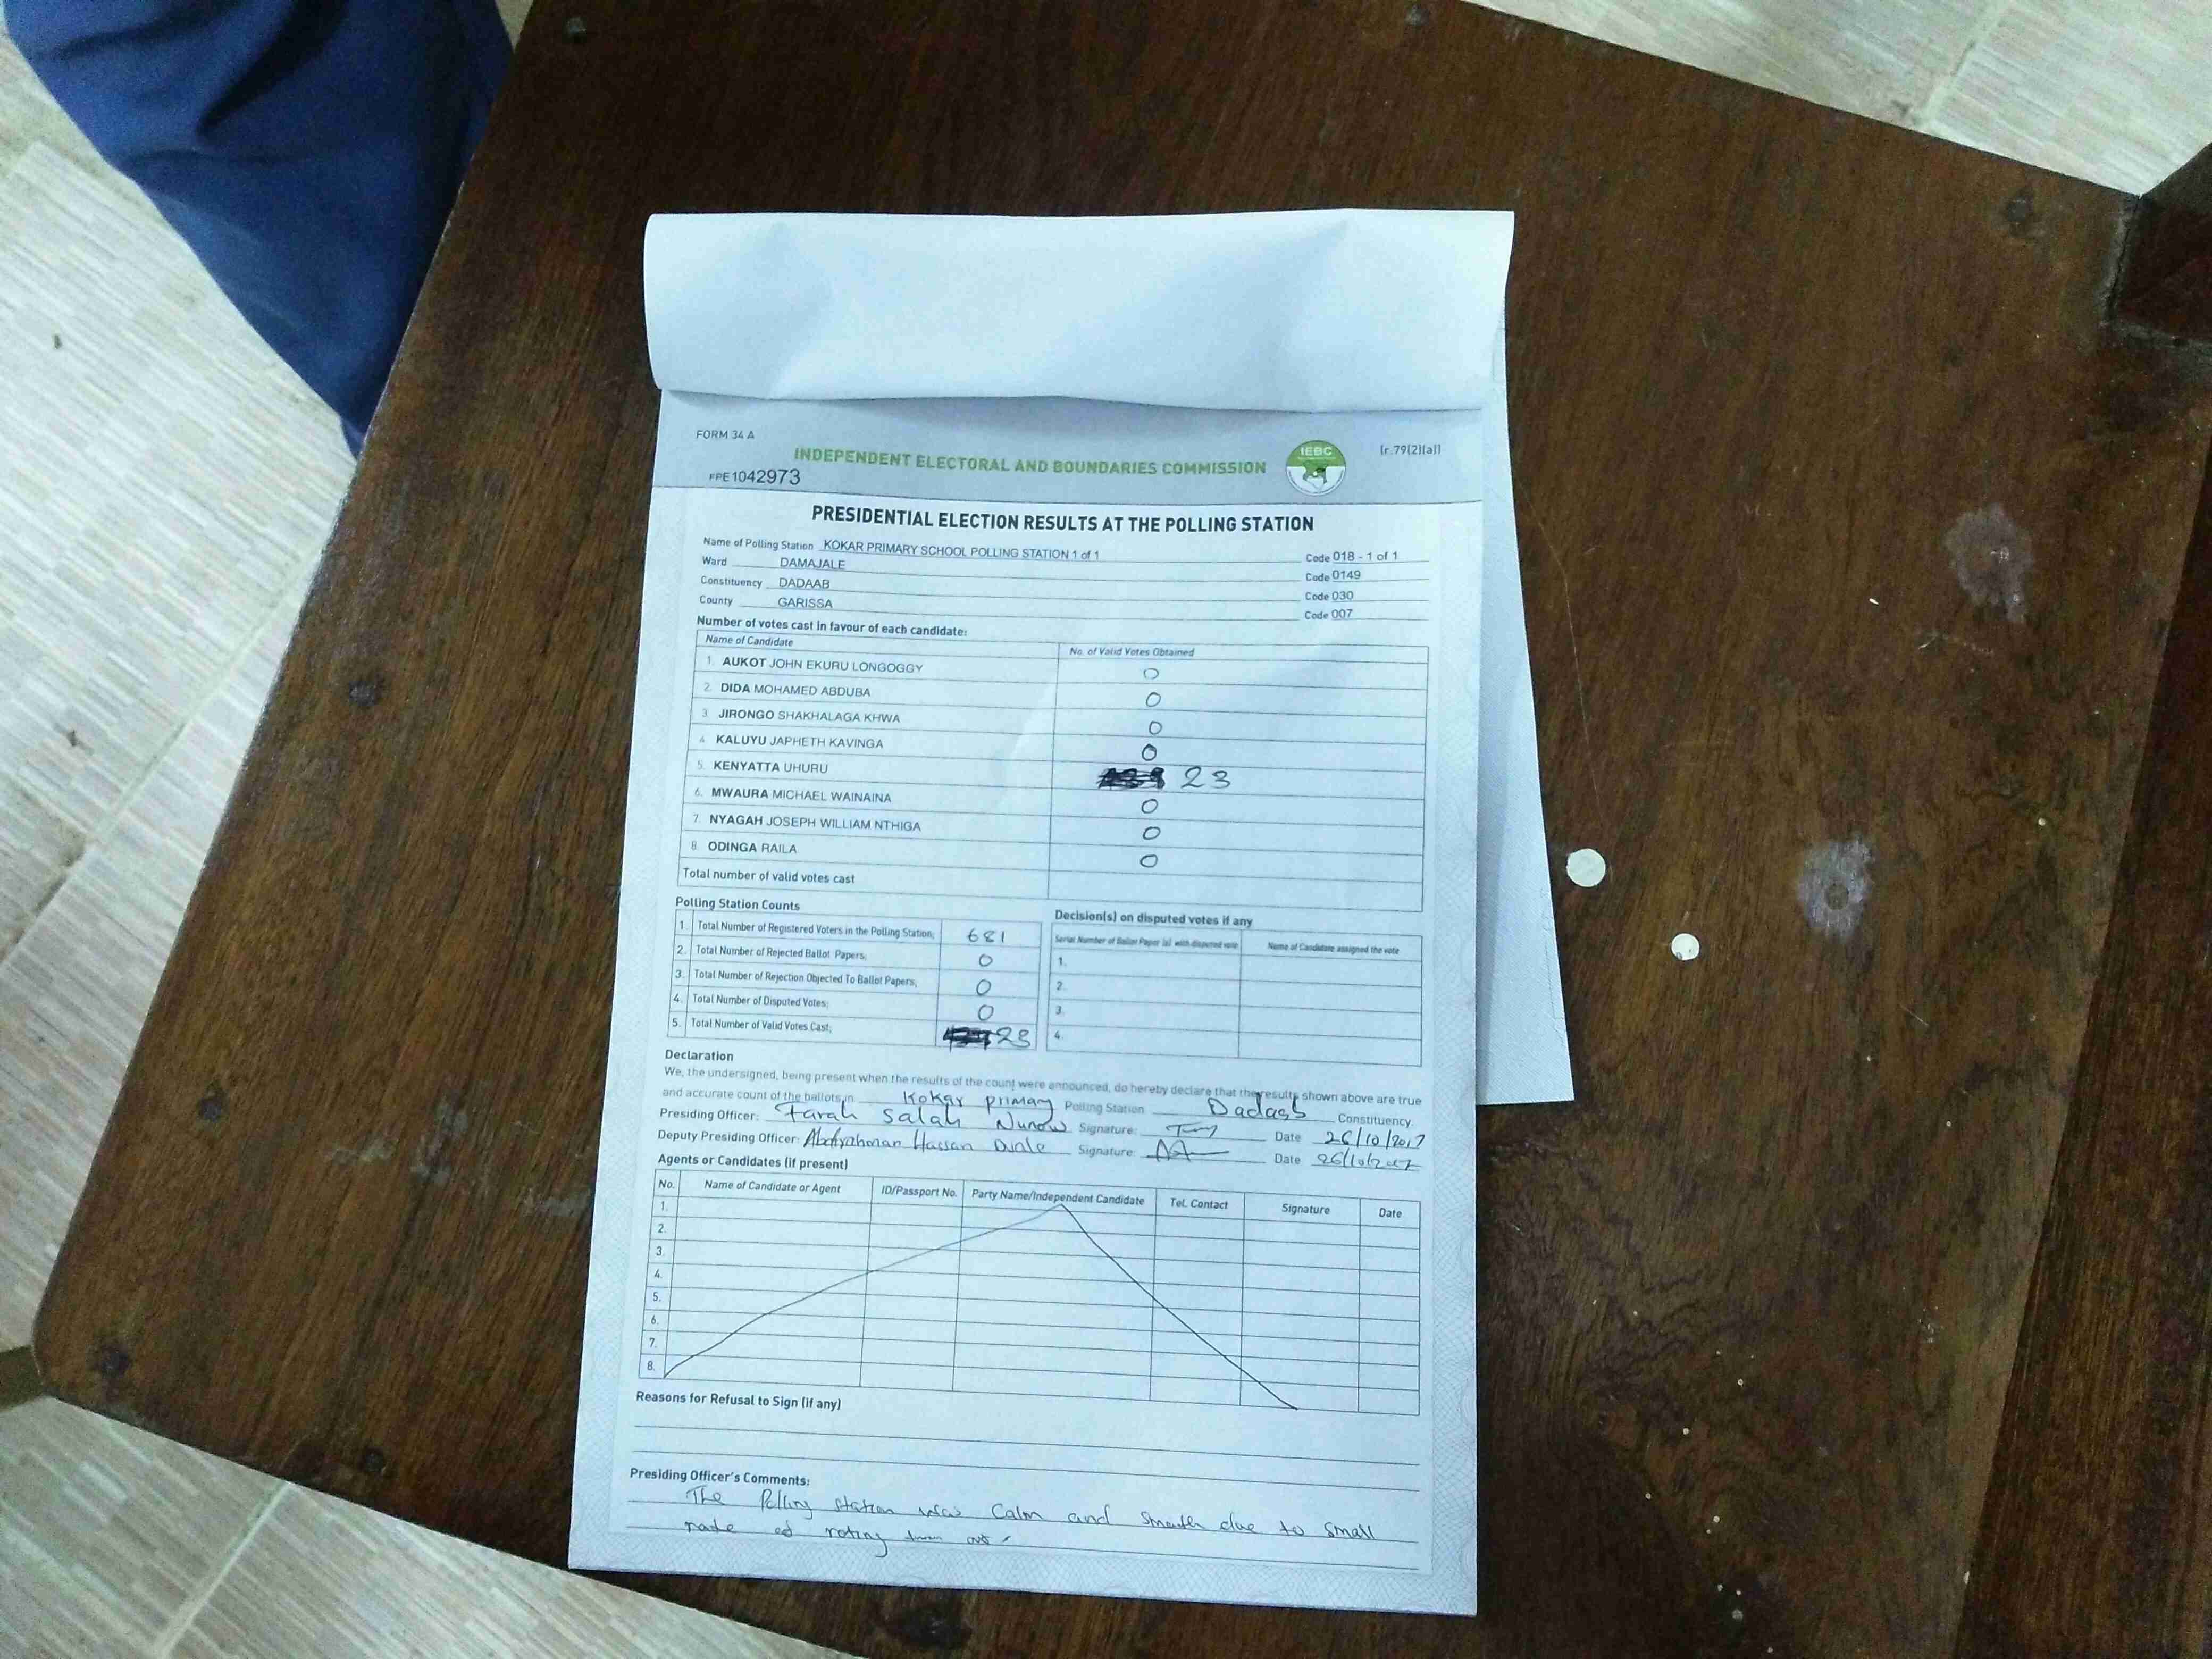 FORM 34 A
[r.79(2)(a)]
INDEPENDENT ELECTORAL AND BOUNDARIES COMMISSION
IEBC
FPE1042973
PRESIDENTIAL ELECTION RESULTS AT THE POLLING STATION
Name of Polling Station KOKAR PRIMARY SCHOOL POLLING STATION 1 of 1 Code 018 - 1 of 1
Ward DAMAJALE Code 0149
Constituency DADAAB Code 030
County GARISSA Code 007
Number of votes cast in favour of each candidate:
Name of Candidate No. of Valid Votes Obtained
1. AUKOT JOHN EKURU LONGOGGY 0
2. DIDA MOHAMED ABDUBA 0
3. JIRONGO SHAKHALAGA KHWA 0
4. KALUYU JAPHETH KAVINGA 0
5. KENYATTA UHURU 23
6. MWAURA MICHAEL WAINAINA 0
7. NYAGAH JOSEPH WILLIAM NTHIGA 0
8. ODINGA RAILA 0
Total number of valid votes cast
Polling Station Counts
1. Total Number of Registered Voters in the Polling Station; 681
2. Total Number of Rejected Ballot Papers; 0
3. Total Number of Rejection Objected To Ballot Papers; 0
4. Total Number of Disputed Votes; 0
5. Total Number of Valid Votes Cast; 23
Decision(s) on disputed votes if any
Serial Number of Ballot Paper (s) with disputed vote Name of Candidate assigned the vote
1.
2.
3.
4.
Declaration
We, the undersigned, being present when the results of the count were announced, do hereby declare that the results shown above are true
and accurate count of the ballots in Kokar primary Polling Station Dadaab Constituency
Presiding Officer: Farah Salah Nunow Signature: Date 26/10/2017
Deputy Presiding Officer: Abdirahman Hassan Duale Signature: Date 26/10/2017
Agents or Candidates (if present)
No. Name of Candidate or Agent ID/Passport No. Party Name/Independent Candidate Tel. Contact Signature Date
1.
2.
3.
4.
5.
6.
7.
8.
Reasons for Refusal to Sign (if any)
Presiding Officer's Comments:
The Polling station was Calm and Smooth due to small
rate of voting turn out.